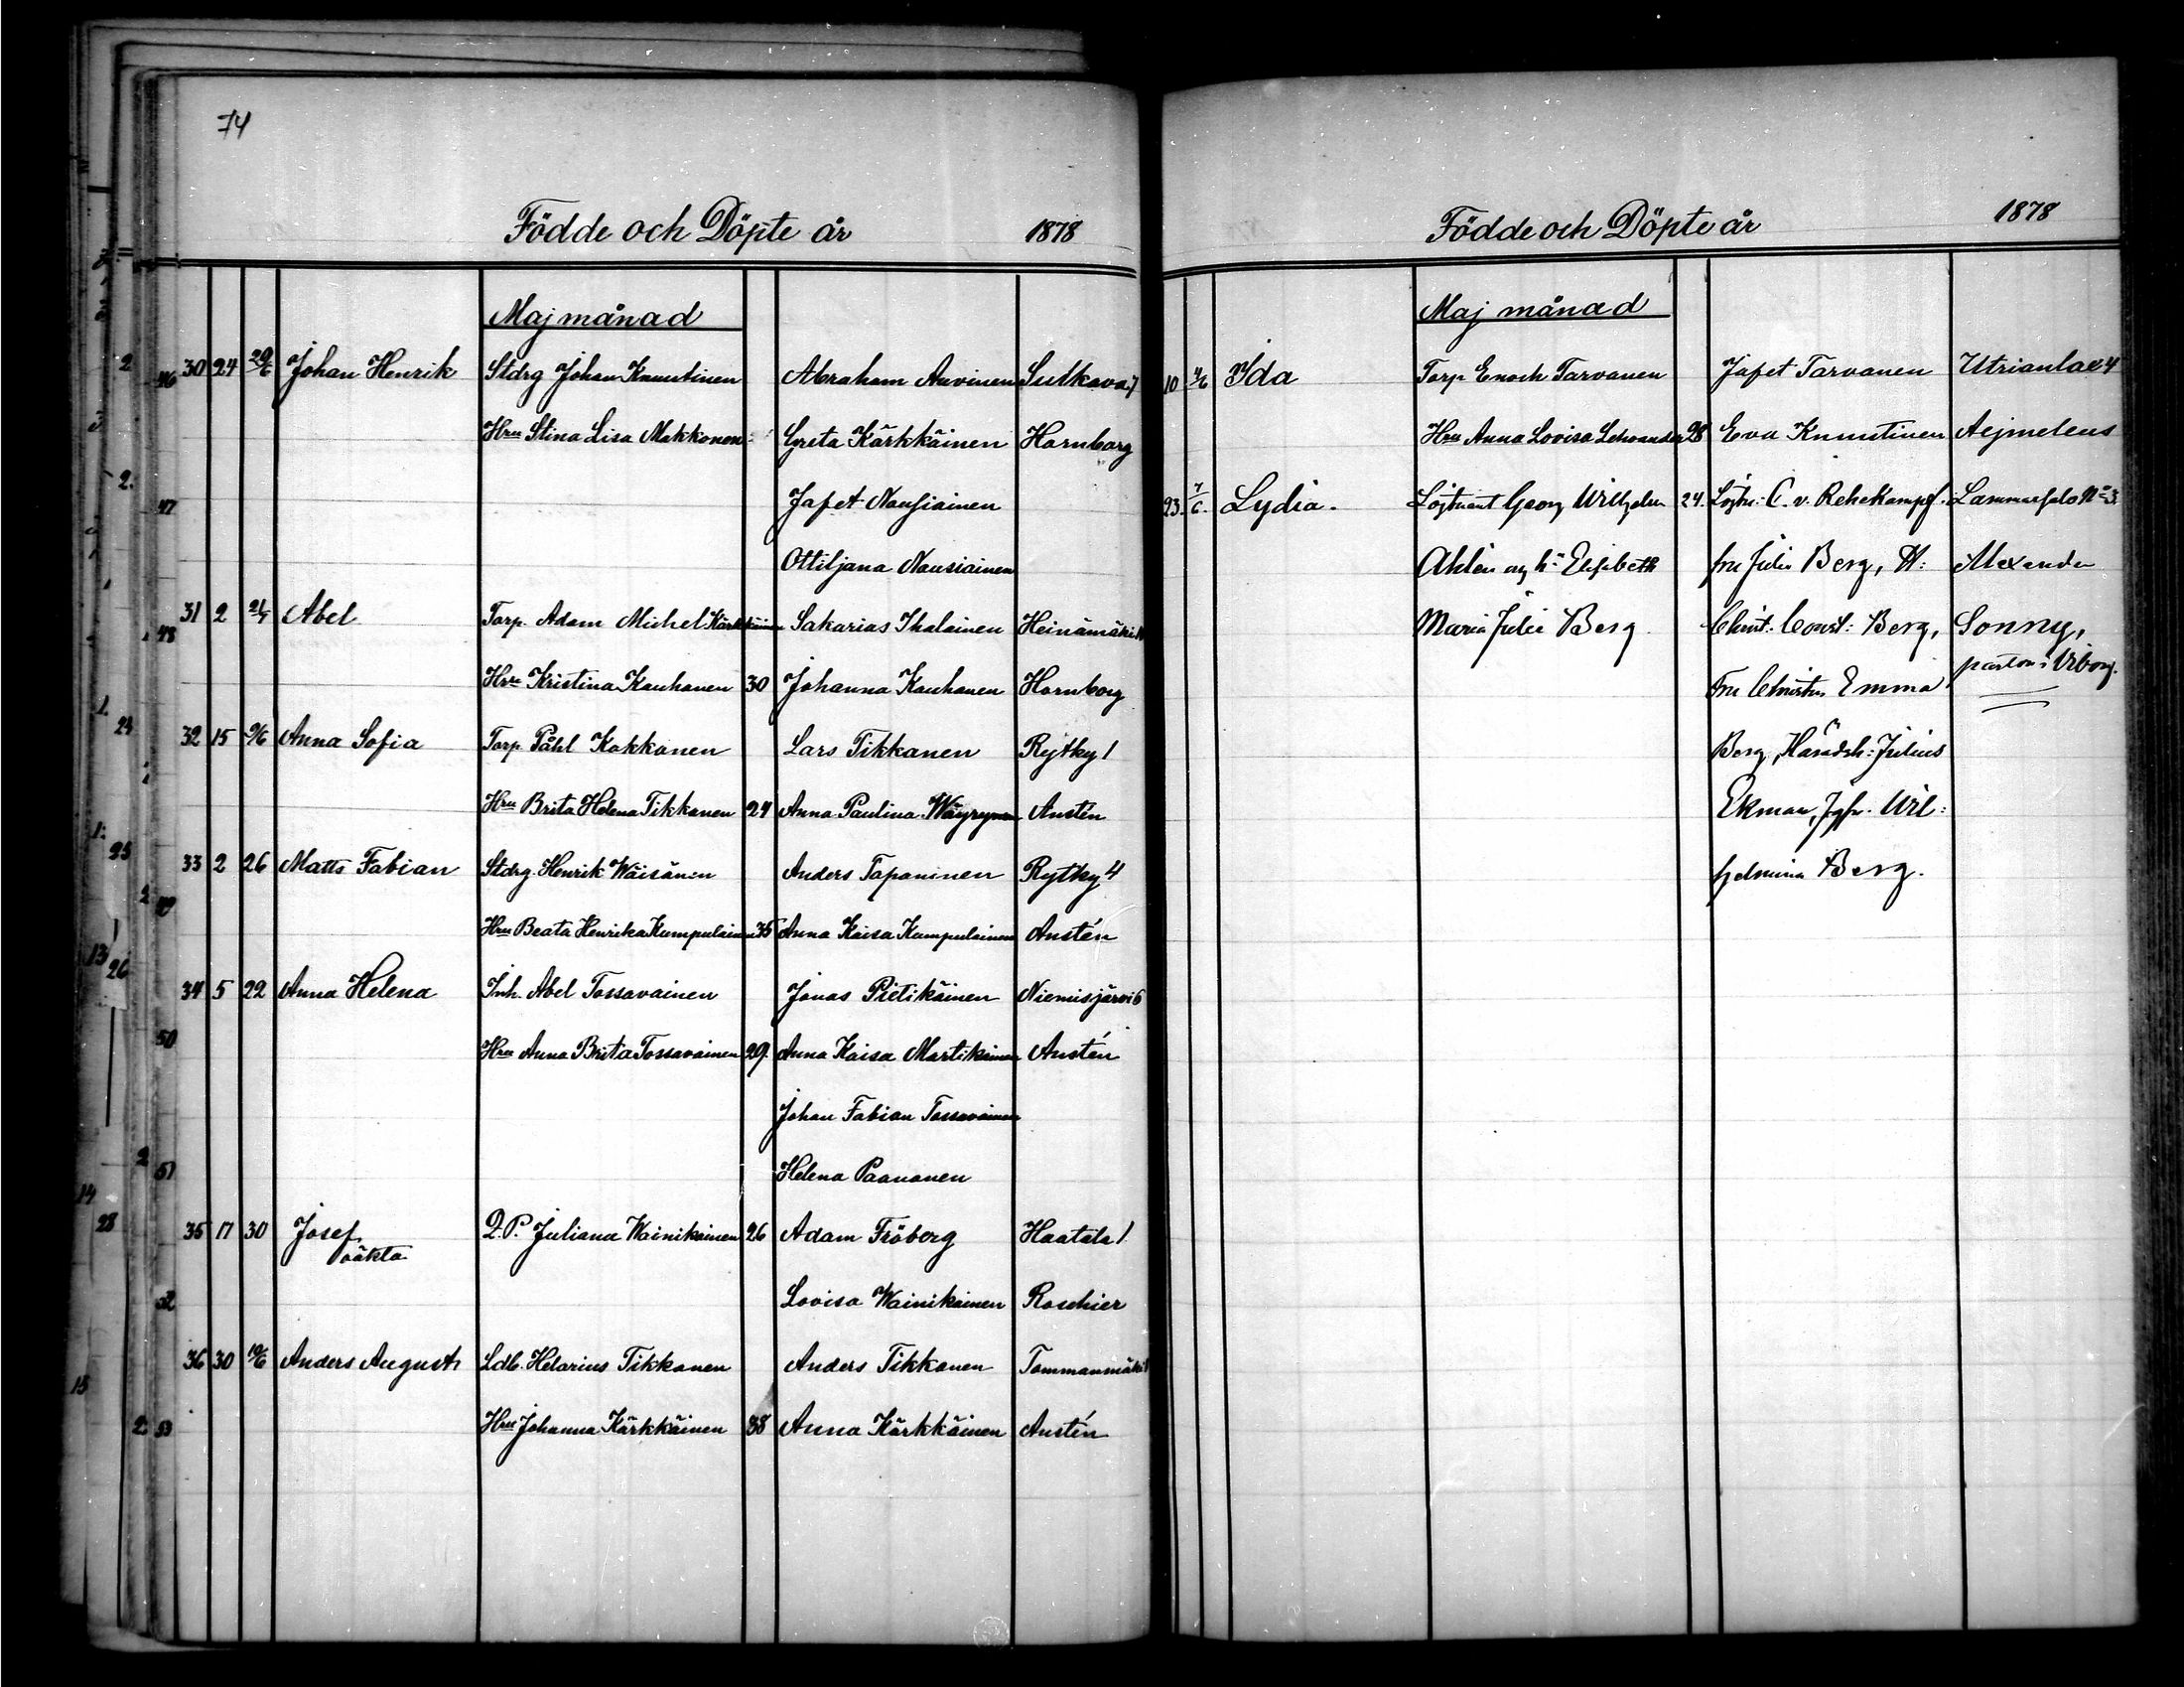 74
Födde och Döpte år 1878
Maj månad
30 24 20/6 Johan Henrik Stdrg Johan Knuutinen Abraham Auvinen Sutkava 7
Hru Stina Lisa Makkonen Greta Kärkkäinen Hornborg
Jafet Nousiainen
Ottiljana Nousiainen
31 2 21/7 Abel Torp. Adam Michel Kärkkäinen Sakarias Ihalainen Heinämäki
Hru Kristina Kauhanen 30 Johanna Kauhanen Hornborg
32 15 9/6 Anna Sofia Torp. Påhl Kokkonen Lars Tikkanen Rytky 1
Hru Brita Helena Tikkanen 24 Anna Paulina Wäyrynen Austén
33 2 26 Matts Fabian Stdrg. Henrik Wäisänen Anders Tapaninen Rytky 4
Hru Beata Henrika Kumpulainen 35 Anna Kaisa Kumpulainen Austén
34 5 22 Anna Helena Inh. Abel Tossavainen Jonas Pietikäinen Niemisjärvi 6
Hru Anna Brita Tossavainen 29. Anna Kaisa Martikainen Austén
Johan Fabian Tossavainen
Helena Paananen
35 17 30 Josef Q.P. Juliana Wainikainen 26 Adam Fröberg Haatala 1
oäkta
Lovisa Wainikainen Roschier
36 30 10/6 Anders August Ldb. Helarius Tikkanen Anders Tikkanen Tommanmäki
Hru Johanna Kärkkäinen 38 Anna Kärkkäinen Austén
Födde och Döpte år 1878
Maj månad
10 4/6 Ida Torp Enoch Tarvanen Jafet Tarvanen Utrianlax 4
Hru Anna Lovisa Lehvander 28 Eva Knuutinen Aejmeleus
23. 7/6. Lydia. Löjtnant Georg Wilhelm 24. Löjtn: C. v. Rehekampf. Lammasalo No 3.
Ahlén og h: Elisabeth fru Julia Berg, H: Alexander
Maria Julia Berg. Christ: Const: Berg, Sonny,
pastor i Viborg.
Fru Christin Emma
Berg, Häradsh: Julius
Ekman, Jgfr. Wil:
helmina Berg.